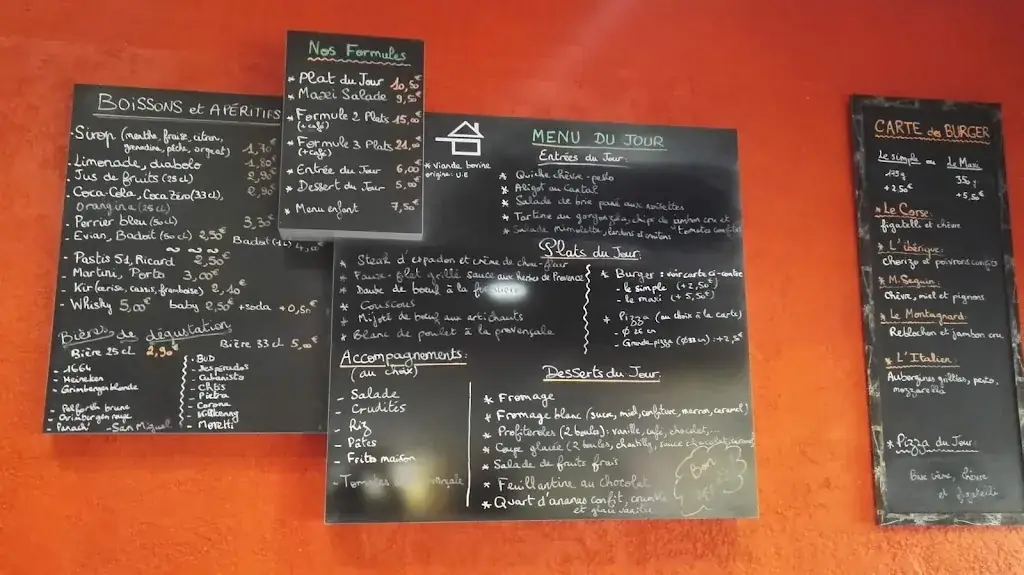 Nos Formules
* Plat du Jour 10,50€
* Maxi Salade 9,50€
* Formule 2 Plats 15,00€
(+ café)
* Formule 3 Plats 21,00€
(+ café)
* Entrée du Jour 6,00€
* Dessert du Jour 5,00€
* Menu enfant 7,50€
BOISSONS et APÉRITIFS
- Sirop (menthe, fraise, citron,
grenadine, pêche, orgeat) 1,70€
- Limonade, diabolo 1,80€
- Jus de fruits (25 cl) 2,90€
- Coca-Cola, Coca Zéro (33 cl), 2,90€
Orangina (25 cl)
- Perrier bleu (50 cl) 3,35
- Evian, Badoit (50 cl) 2,50€
Badoit (1L) 4,00€
- Pastis 51, Ricard 2,50€
- Martini, Porto 3,00€
- Kir (cerise, cassis, framboise) 2,10€
- Whisky 5,00€ baby 2,50€ +soda +0,50€
Bières de dégustation
Bière 25 cl 2,90€ Bière 33 cl 5,00€
- 1664
- Heineken
- Grimbergen blonde
- Pelforth brune
- Grimbergen rouge
- Panach' - San Miguel
- BUD
- Desperados
- Cubanisto
- Ch'ti
- Pietra
- Corona
- Kilkenny
- MORETTI
* viande bovine
origine: U.E
MENU DU JOUR
Entrées du Jour:
* Quiche chèvre - pesto
* Aligot au Cantal
* Salade de brie pané aux noisettes
* Tartine au gorgonzola, chips de jambon cru et
* Salade mimolette, lardons et croûtons tomates confites
Plats du Jour:
* Steak d'espadon et crème de chou-fleur
* Faux-filet grillé sauce aux herbes de Provence
* Daube de boeuf à la
* Couscous
* Mijoté de boeuf aux artichauts
* Blanc de poulet à la provençale
* Burger: voir carte ci-contre
- le simple (+ 2,50€)
- le maxi (+ 5,50€)
* Pizza (au choix à la carte)
- Ø 26 cm
- Grande pizza (Ø 33 cm): +2,50€
Accompagnements:
(au choix)
- Salade
- Crudités
- Riz
- Pâtes
- Frites maison
- Tomates à la provençale
Desserts du Jour:
* Fromage
* Fromage blanc (sucre, miel, confiture, marron, caramel)
* Profiteroles (2 boules): vanille, café, chocolat,...
* Coupe glacée (2 boules, chantilly, sauce chocolat, caramel)
* Salade de fruits frais
* Feuillantine au chocolat
* Quart d'ananas confit, crumble
et glace vanille
Bon
CARTE de BURGER
Le simple ou Le Maxi
175g
+2,50€
+5,50€
* Le Corse:
figatelli et chèvre
* L'ibérique:
Chorizo et poivrons confits
* M. Seguin:
Chèvre, miel et pignons
* Le Montagnard:
Reblochon et jambon cru
* L'Italien:
Aubergines grillées, pesto,
mozzarella
* Pizza du Jour:
chèvre
et figatelli